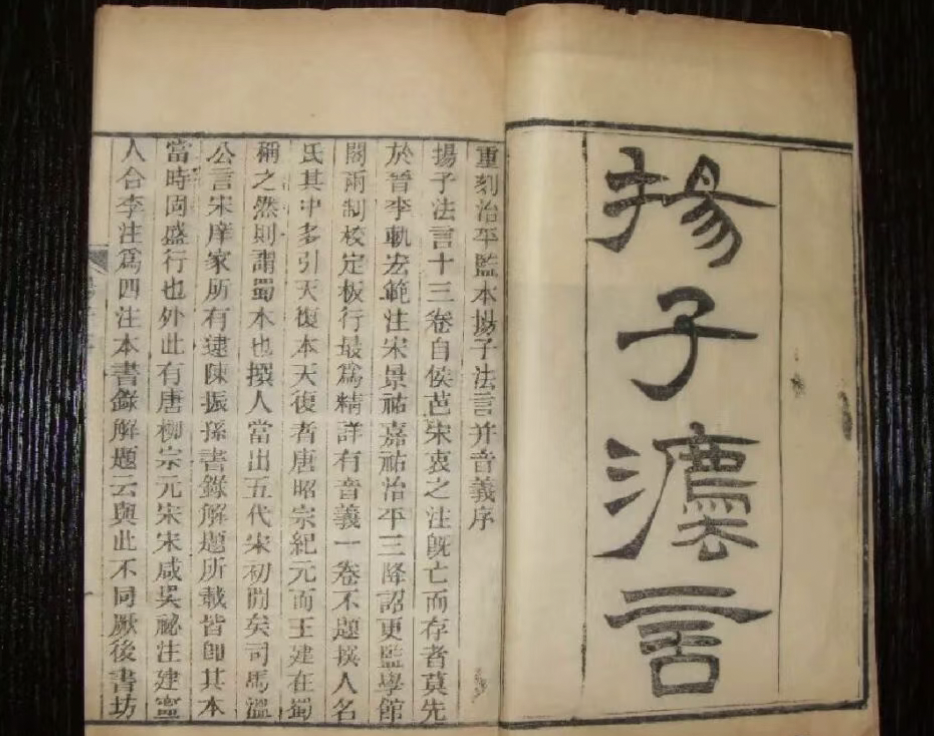 揚子灋言
重刻治平監本揚子法言并音義序
揚子法言十三卷自侯芭宋衷之注旣亡而存者莫先
於晉李軌宏範注宋景祐嘉祐治平三降詔更監學館
閣兩制校定板行最爲精詳有音義一卷不題撰人名
氏其中多引天復本天復者唐昭宗紀元而王建在蜀
稱之然則謂蜀本也撰人當出五代宋初閒矣司馬溫
公言宋庠家所有逮陳振孫書錄解題所載皆卽其本
當時固盛行也外此有唐柳宗元宋宋咸吳祕注建寧
人合李注爲四注本書錄解題云與此不同厥後書坊